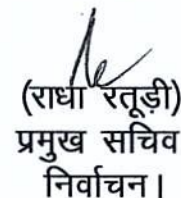 (राधा रतूड़ी)
प्रमुख सचिव
निर्वाचन।